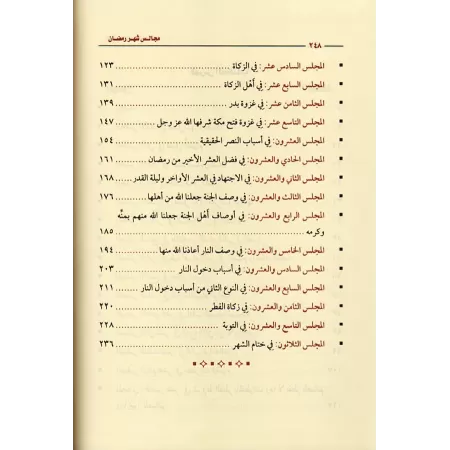 مجالس شهر رمضان
٢٤٨
المجلس السادس عشر: في الزكاة ١٢٣
المجلس السابع عشر: في أهل الزكاة ١٣١
المجلس الثامن عشر: في غزوة بدر ١٣٩
المجلس التاسع عشر: في غزوة فتح مكة شرفها الله عز وجل ١٤٧
المجلس العشرون: في أسباب النصر الحقيقية ١٥٤
المجلس الحادي والعشرون: في فضل العشر الأخير من رمضان ١٦١
المجلس الثاني والعشرون: في الاجتهاد في العشر الأواخر وليلة القدر ١٦٨
المجلس الثالث والعشرون: في وصف الجنة جعلنا الله من أهلها ١٧٦
المجلس الرابع والعشرون: في أوصاف أهل الجنة جعلنا الله منهم بمنّه
وكرمه ١٨٥
المجلس الخامس والعشرون: في وصف النار أعاذنا الله منها ١٩٤
المجلس السادس والعشرون: في أسباب دخول النار ٢٠٣
المجلس السابع والعشرون: في النوع الثاني من أسباب دخول النار ٢١١
المجلس الثامن والعشرون: في زكاة الفطر ٢٢٠
المجلس التاسع والعشرون: في التوبة ٢٢٨
المجلس الثلاثون: في ختام الشهر ٢٣٦